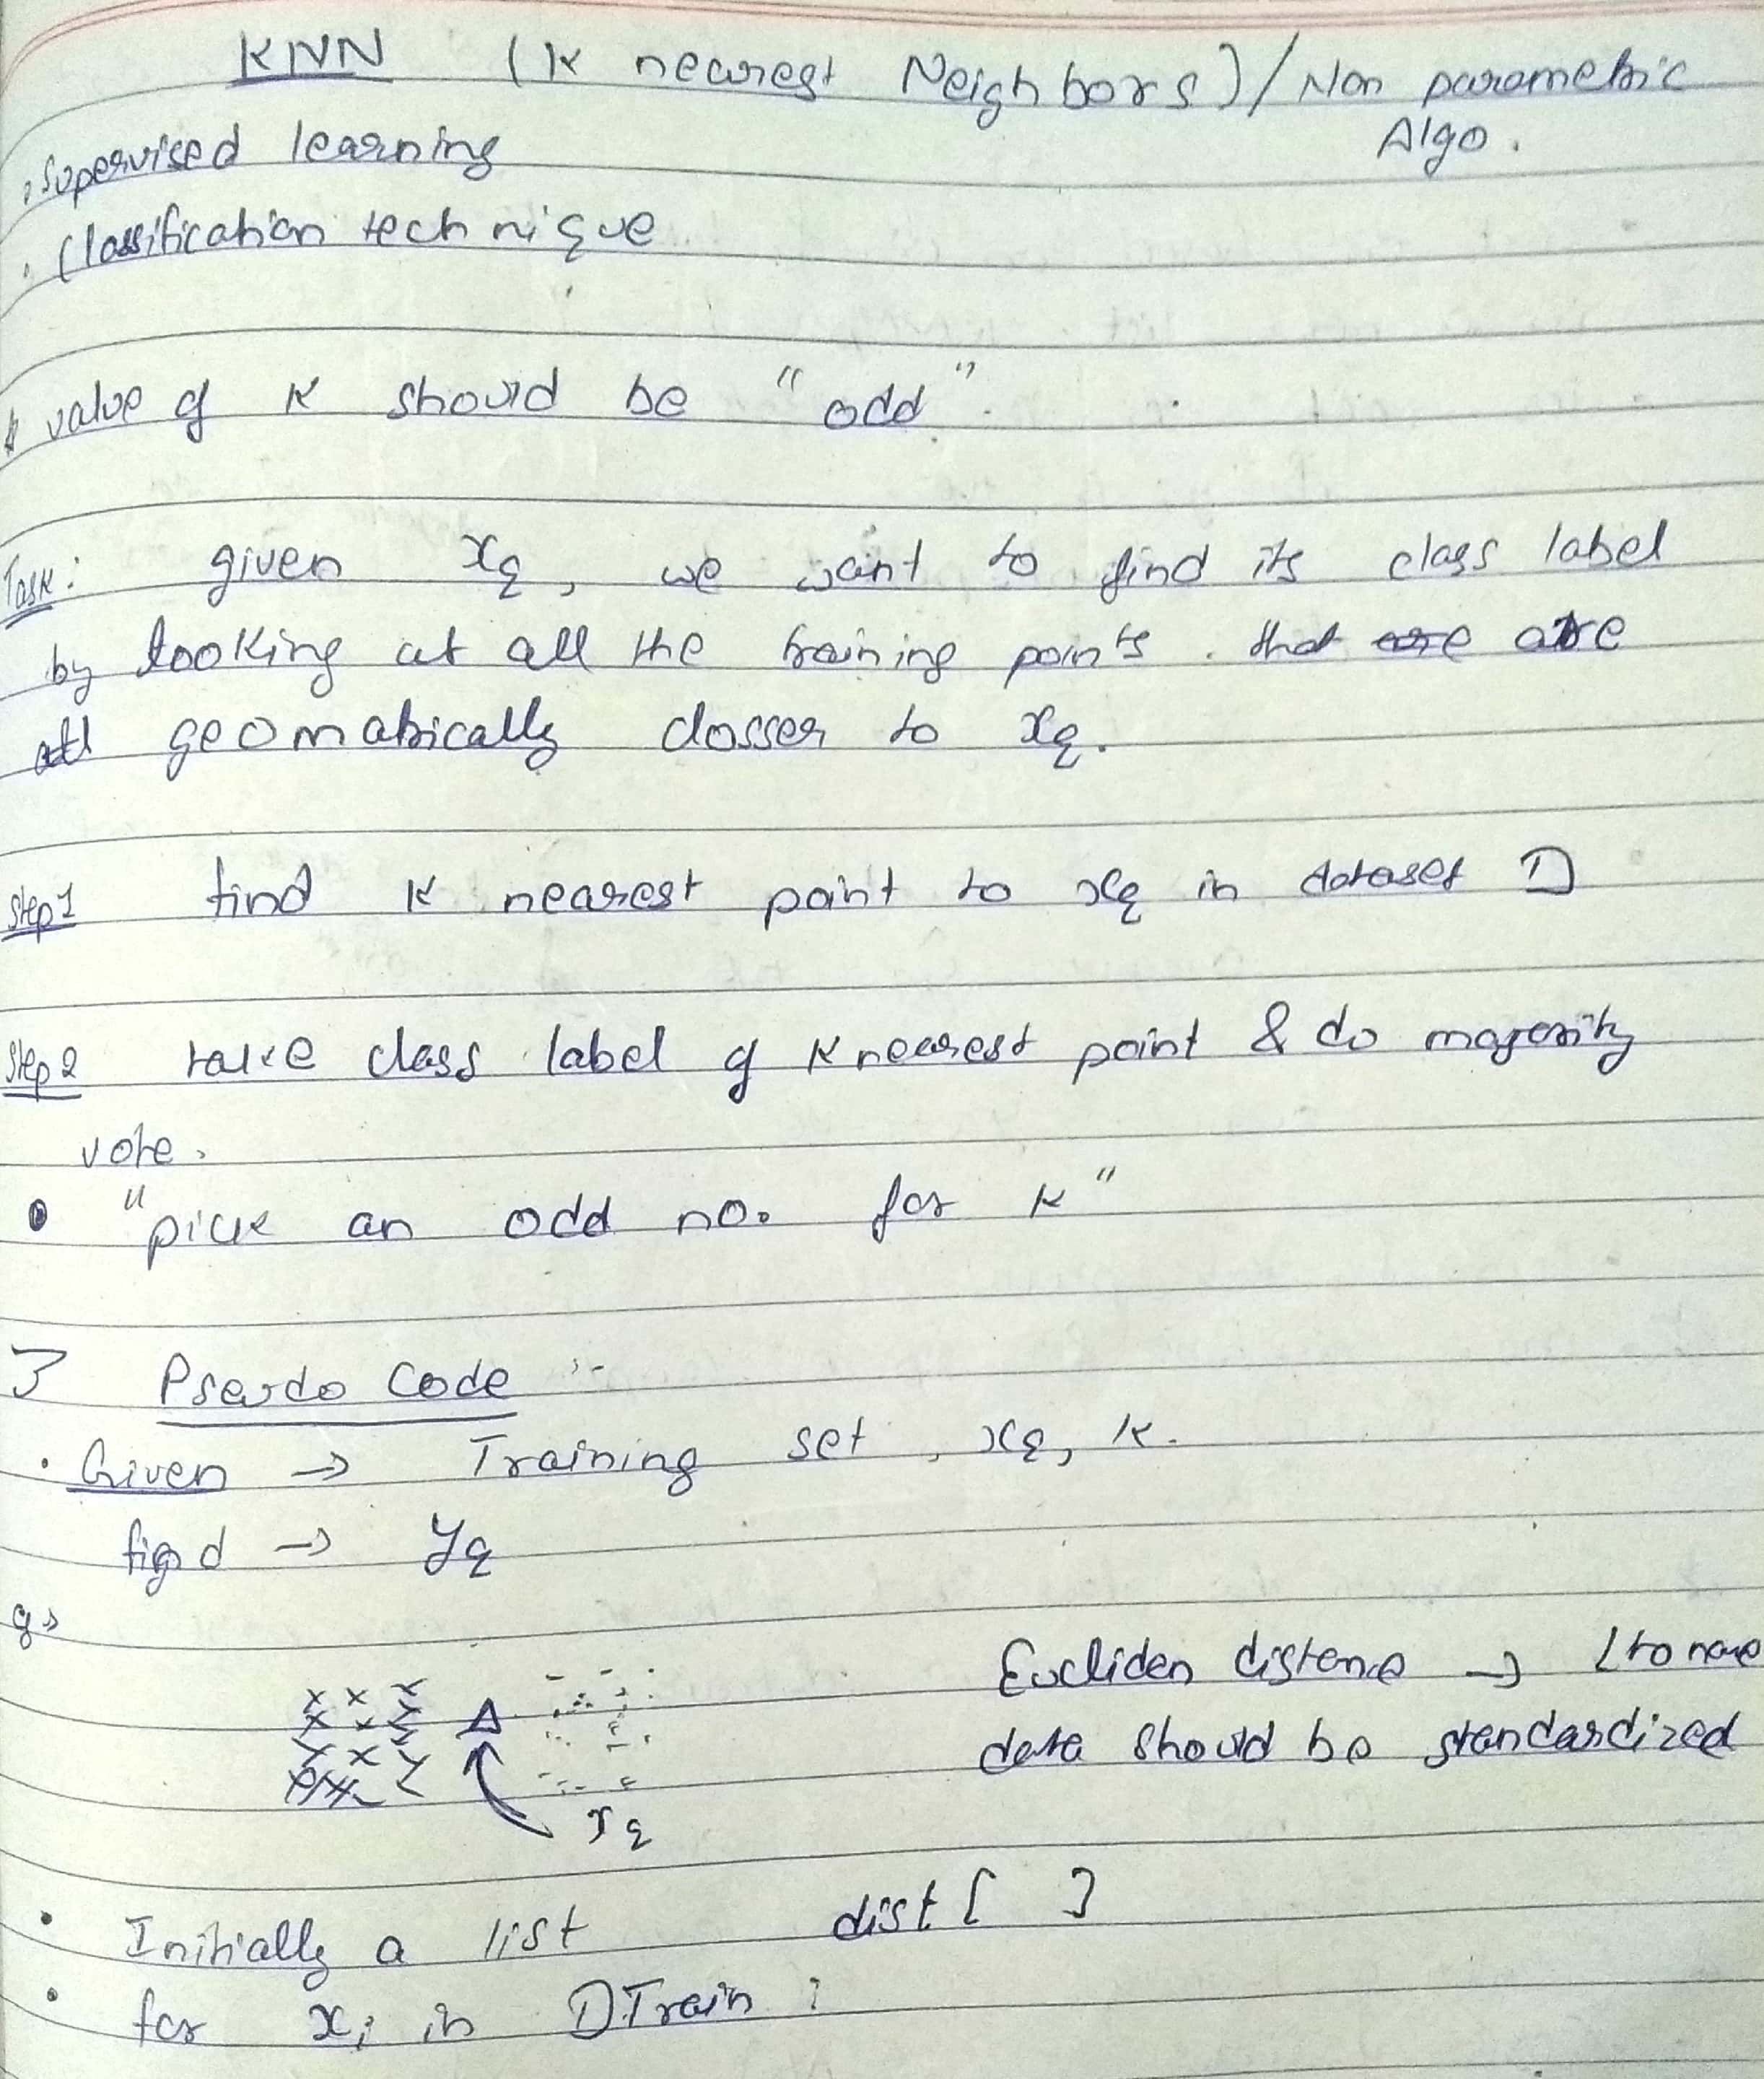 KNN (K nearest Neighbors) / Non parametric
Algo.
. Supervised learning
. Classification technique
* value of K should be "odd".
Task: given xq, we want to find its class label
by looking at all the training points. that are
geomatrically closser to xq.
Step 1 find K nearest point to xq in dataset D
Step 2 take class label of K nearest point & do majority
vote.
• "pick an odd no. for K"
} Pseudo Code :-
. Given → Training set, xq, K.
find → yq
Eucliden distence →
data should be standardized
xq
• Initially a list dist [ ]
• for xi in DTrain :